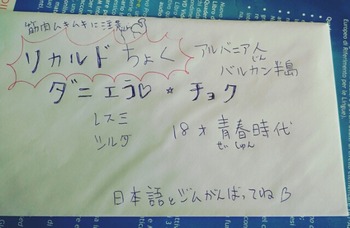 筋肉ムキムキに注意
リカルド ちょく
アルバニア人
じん
バルカン半島
ダニエラ♡☆チョク
レスミ
ツルダ
18才 青春時代
せいしゅん
日本語とジムがんばってねβ